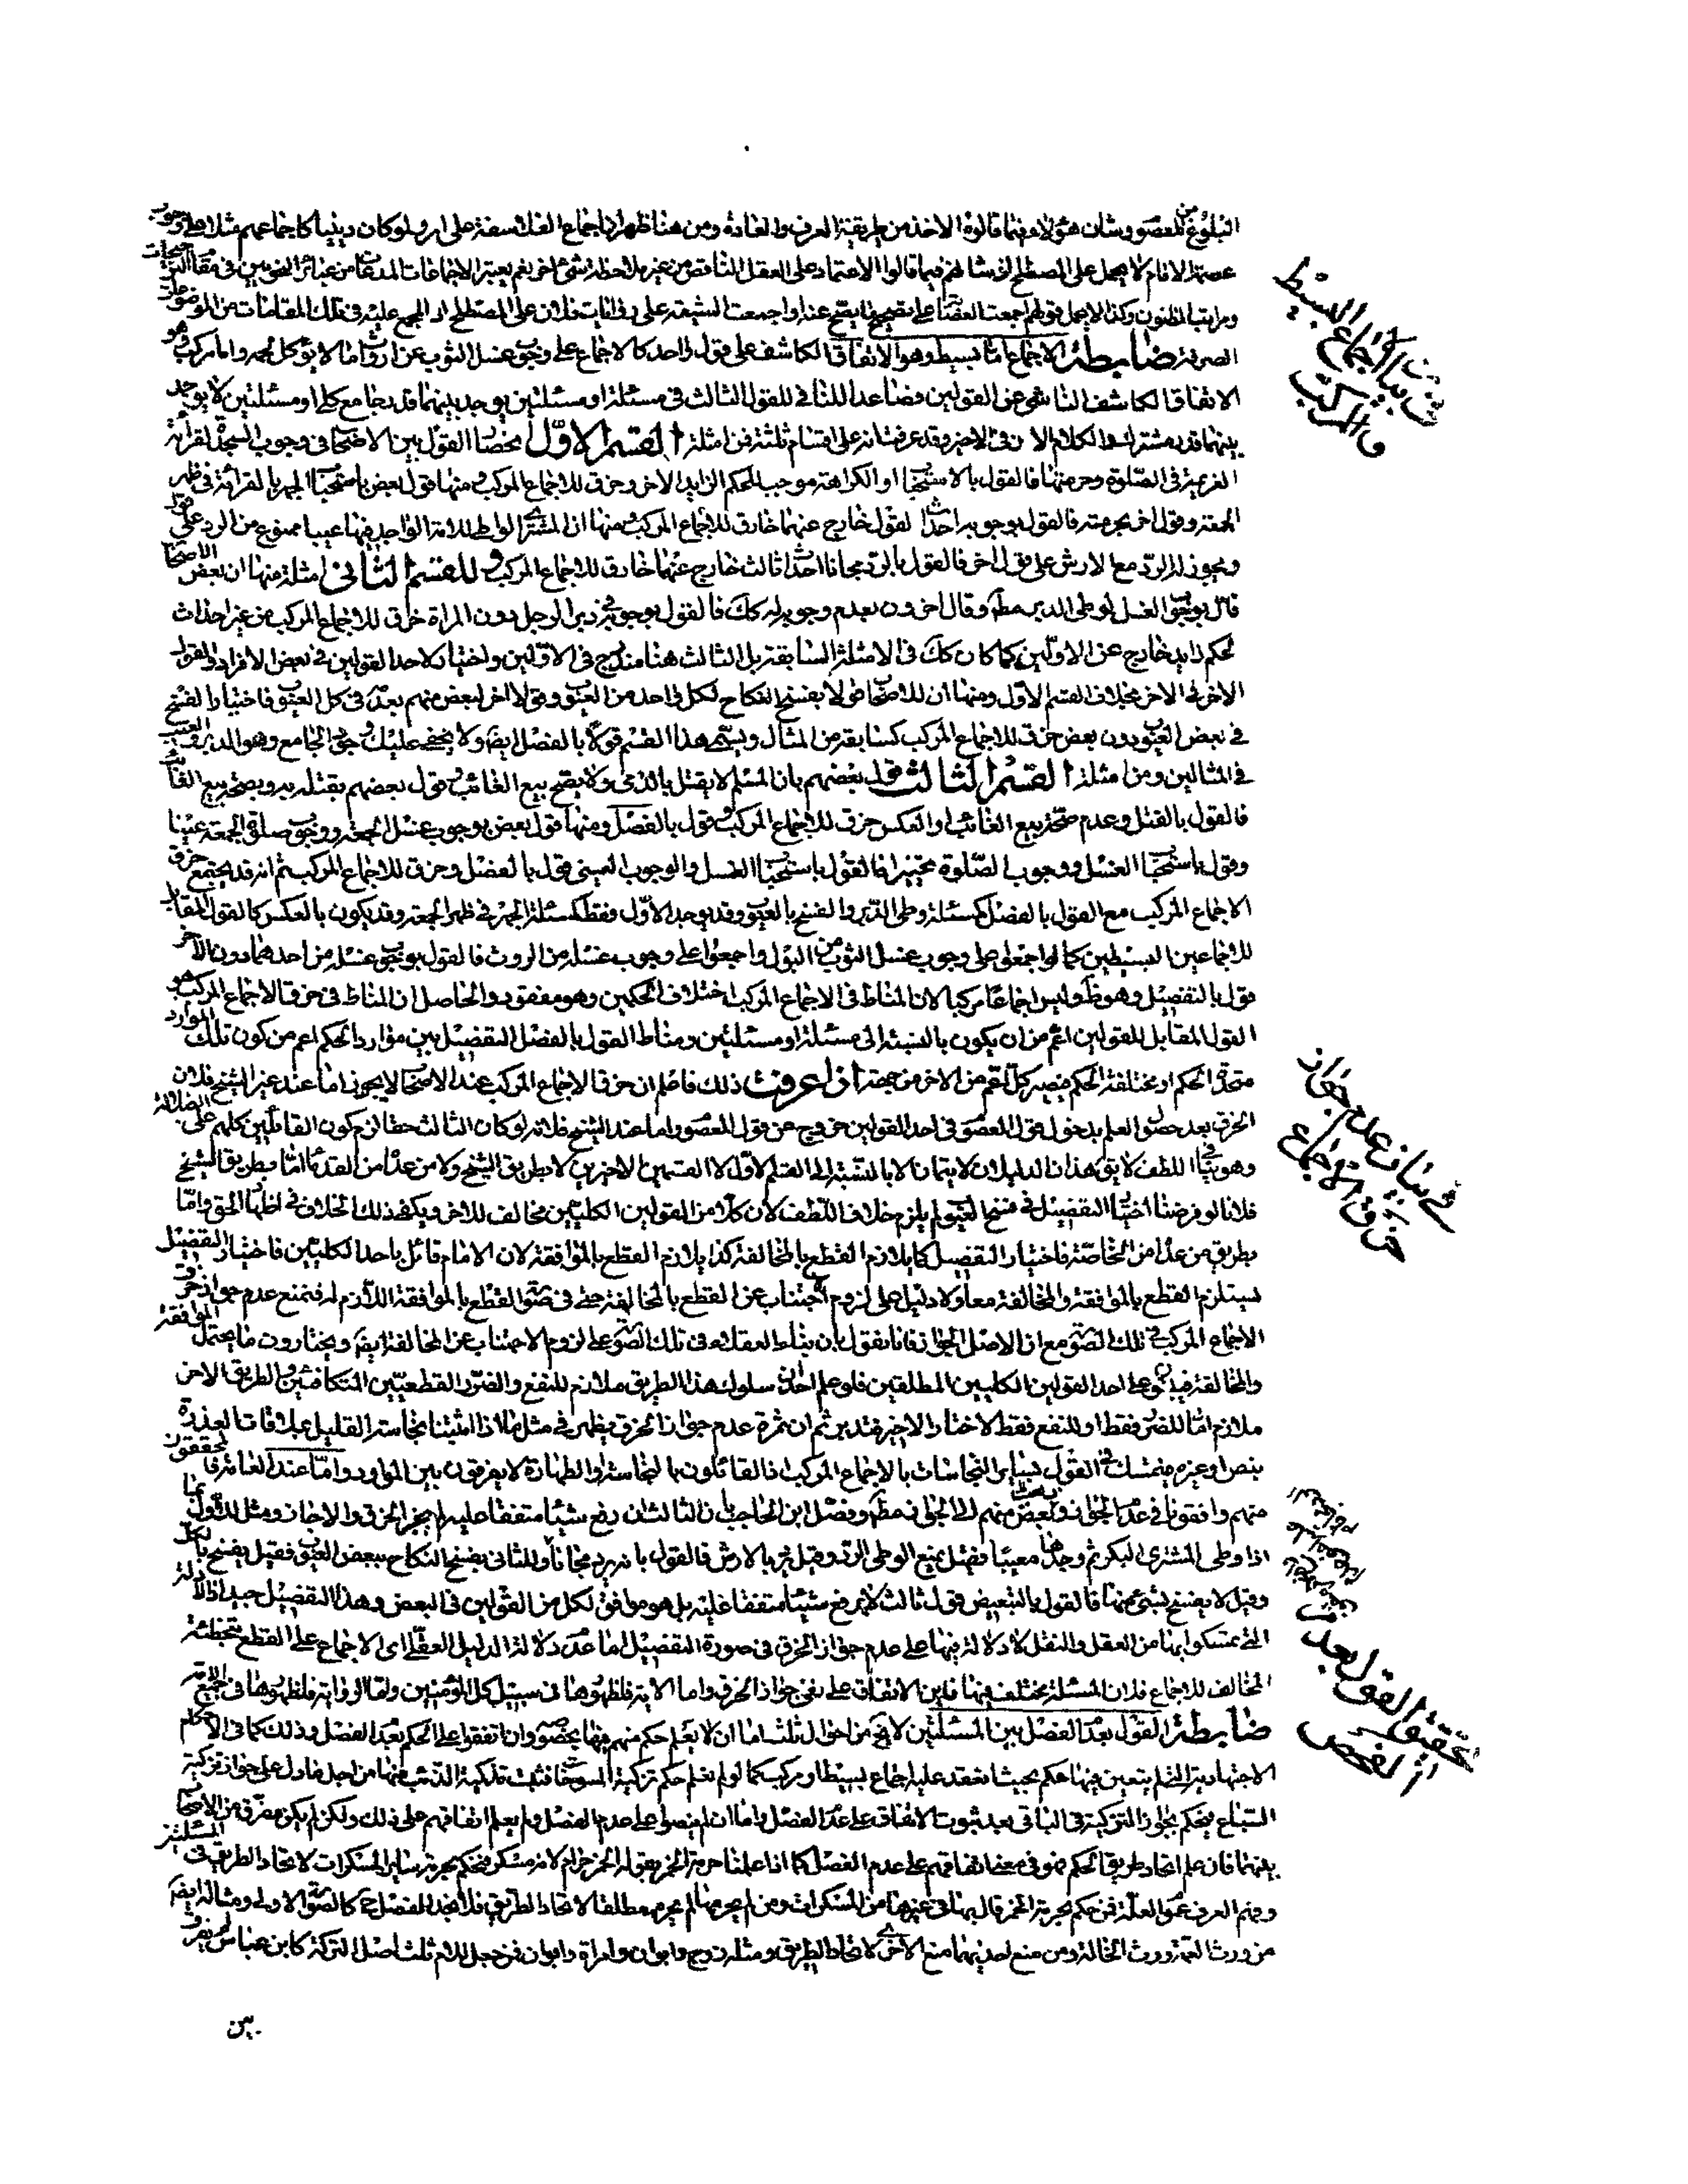 البلوغ من المعصوم وشان هؤلاء فيما قالوه الاخذ من طريقة العرف والعادة ومن هنا ظهر ان اجماع الفلاسفة على امر ولو كان دينيا كاجماعهم مثلا على وجوب
عصمة الامام لا يحمل على المصطلح اذ شانهم فيما قالوا الاعتماد على العقل الناقص من غير ملاحظة شئ اخر نعم يعتبر الاجماعات المدعاة من عبائر اللغويين في مقام الترجيحات
ومراتب الظنون وكذا لا يحمل قولهم اجمعت العصابة على تصحيح ما يصح عنه او اجمعت الشيعة على روايات فلان على المصطلح اذ المجمع عليه في تلك المقامات من الموضوعات
الصرفة ضابطة الاجماع اما بسيط وهو الاتفاق الكاشف على قول واحد كالاجماع على وجوب غسل الثوب عن ارواث ما لا يؤكل لحمه واما مركب وهو
الاتفاق الكاشف الناشي عن القولين فصاعدا النافي للقول الثالث في مسئلة او مسئلتين يوجد بينهما قدر جامع كلي او مسئلتين لا يوجد
بينهما قدر مشترك والكلام الان في الاخير وقد عرفت انه على اقسام ثلثة فمن امثلة القسم الاول انحصار القول بين الاصحاب في وجوب السجدة لقرائة
العزيمة في الصلوة وحرمتها فالقول بالاستحباب او الكراهة موجب للحكم الزايد الاخر وخرق للاجماع المركب ومنها قول بعض باستحباب الجهر بالقرائة في ظهر
الجمعة وقول اخر بحرمته فالقول بوجوبه احداث لقول خارج عنهما خارق للاجماع المركب ومنها ان المشتري الواطي للامة الواجد فيها عيبا ممنوع من الرد على قول
ويجوز له الرد مع الارش على قول اخر فالقول بالرد مجانا احداث ثالث خارج عنهما خارق للاجماع المركب وللقسم الثاني امثلة منها ان بعض الاصحاب
قائل بوجوب الغسل لوطي الدبر مطلقا وقال اخرون بعدم وجوبه له كك فالقول بوجوبه في دبر الرجل دون المراة خرق للاجماع المركب من غير احداث
لحكم زايد خارج عن الاولين كما كان كك في الامثلة السابقة بل الثالث هنا مندرج في الاولين واختيار لاحد القولين في بعض الافراد والقول
الاخر في الاخر بخلاف القسم الاول ومنها ان للاصحاب قولا بفسخ النكاح لكل واحد من العيوب وقولا اخر لبعض منهم بعدمه في كل العيوب فاختيار الفسخ
في بعض العيوب دون بعض خرق للاجماع المركب كسابقه من المثال ويسمى هذا القسم قولا بالفصل ايضا ولا يخفى عليك وجود الجامع وهو الدبر والعيب
في المثالين ومن امثلة القسم الثالث قول بعضهم بان المسلم لا يقتل بالذمي ولا يصح بيع الغائب وقول بعضهم بقتله به وبصحة بيع الغائب
فالقول بالقتل وعدم صحة بيع الغائب او العكس خرق للاجماع المركب وقول بالفصل ومنها قول بعض بوجوب غسل الجمعة ووجوب صلوة الجمعة عينا
وقول باستحباب الغسل ووجوب الصلوة تخييرا فالقول باستحباب الغسل والوجوب العيني قول بالفصل وخرق للاجماع المركب ثم انه قد يجتمع خرق
الاجماع المركب مع القول بالفصل كمسئلة وطي الدبر والفسخ بالعيوب وقد يوجد الاول فقط كمسئلة الجهر في ظهر الجمعة وقد يكون بالعكس كالقول المقابل
للاجماعين البسيطين كما لو اجمعوا على وجوب غسل الثوب من البول واجمعوا على وجوب غسله من الروث فالقول بوجوب غسله من احدهما دون الاخر
قول بالتفصيل وهو ظ وليس اجماعا مركبا لان المناط في الاجماع المركب اختلاف الحكمين وهو مفقود والحاصل ان المناط في خرق الاجماع المركب هو
القول المقابل للقولين اعم من ان يكون بالنسبة الى مسئلة او مسئلتين ومناط القول بالفصل التفصيل بين موارد الحكم اعم من كون تلك الموارد
متحدة الحكم او مختلفة الحكم فيصير كل اعم من الاخر من جهة اذا عرفت ذلك فاعلم ان خرق الاجماع المركب عند الاصحاب لا يجوز اما عند غير الشيخ فلان
الخرق بعد حصول العلم بدخول قول المعصوم في احد القولين خروج عن قول المعصوم واما عند الشيخ فلانه لو كان الثالث حقا لزم كون القائلين كلهم على الضلالة
وهو ينافي اللطف لا يق هذان الدليلان لا يتمان الا بالنسبة الى القسم الاول لا القسمين الاخيرين لا بطريق الشيخ ولا من عداه من القدماء اما بطريق الشيخ
فلانا لو فرضنا اختيار التفصيل في فسخ العيوب لم يلزم خلاف اللطف لان كلا من القولين الكليين مخالف للاخر ويكفي ذلك الخلاف في اظهار الحق واما
بطريق من عداه من الخاصة فاختيار التفصيل كما يلازم القطع بالمخالفة كذا يلازم القطع بالموافقة لان الامام قائل باحد الكليين فاختيار التفصيل
يستلزم القطع بالموافقة والمخالفة معا ولا دليل على لزوم الاجتناب عن القطع بالمخالفة حتى في صورة القطع بالموافقة اللازم له فنمنع عدم جواز خرق
الاجماع المركب في تلك الصورة مع ان الاصل الجواز فانا نقول بان بناء العقلاء في تلك الصورة على لزوم الاجتناب عن المخالفة ايضا ويختارون ما يحتمل الموافقة
والمخالفة فيبنون على احد القولين الكليين المطلقين فلو علم احد ان سلوك هذا الطريق ملازم للنفع والضرر القطعيين المتكافئين والطريق الاخر
ملازم اما للضرر فقط او للنفع فقط لاختار الاخير فتدبر ثم ان ثمرة عدم جواز الخرق يظهر في مثل ما اذا اثبتنا نجاسة القليل بملاقات العذرة
بنص او غيره فيتمسك في القول بسائر النجاسات بالاجماع المركب فالقائلون بالنجاسة والطهارة لا يفرقون بين الموارد واما عند العامة فالمحققون
منهم وافقونا في عدم الجواز وذهب بعض منهم الى الجواز مطلقا وفصل ابن الحاجب بان الثالث ان رفع شيئا متفقا عليه لم يجز الخرق والا جاز ومثل للاول بما
اذا وطى المشتري البكر ثم وجدها معيبا فقيل يمنع الوطي الرد وقيل يرد بالارش فالقول بانه يرد مجانا وللثاني بفسخ النكاح ببعض العيوب فقيل يفسخ بالكل
وقيل لا يفسخ بشئ منها فالقول بالتبعيض قول ثالث لا يرفع شيئا متفقا عليه بل هو موافق لكل من القولين في البعض وهذا التفصيل جيد اذ الادلة
التي تمسكوا بها من العقل والنقل لا دلالة فيها على عدم جواز الخرق في صورة التفصيل اما عدم دلالة الدليل العقلي اي الاجماع على القطع بتخطئة
المخالف للاجماع فلان المسئلة مختلف فيها فاين الاتفاق على نفي جواز الخرق واما الاية فلظهورها في سبيل كل المؤمنين واما الرواية فلظهورها في جميع الامة
ضابطة القول بعدم الفصل بين المسئلتين لا يخ من احوال ثلث اما ان لا يعلم حكم منهم فيها بخصوصه وان اتفقوا على الحكم بعدم الفصل وذلك كما في الاحكام
الاجتهادية التي لم يتعين فيها حكم بحيث انعقد عليه اجماع بسيط او مركب كما لو لم نعلم حكم تزكية السوخ فثبت تذكية الذئب منها من اجل ما دل على جواز تزكية
السباع فيحكم بجواز التزكية في الباقي بعد ثبوت الاتفاق على عدم الفصل واما ان لم ينصوا على عدم الفصل ولم يعلم اتفاقهم على ذلك ولكن لم يكن مفرق من الاصحاب
بينهما فان علم اتحاد طريق الحكم فهو في معنى اتفاقهم على عدم الفصل كما اذا علمنا حرمة الخمر بقوله الخمر حرام لانه مسكر فنحكم بحرمة ساير المسكرات لاتحاد الطريق في المسئلتين
وفهم العرف عموم العلة فمن حكم بحرمة الخمر قال بها في غيرها من المسكرات ومن لم يحرمها لم يحرم مطلقا لاتحاد الطريق فلا يجوز الفصل ح كالصورة الاولى ومثاله ايضا
من ورث العمة ورث الخالة ومن منع احديهما منع الاخرى لاتحاد الطريق ومثله زوج وابوان وامراة وابوان فمن جعل للام ثلث اصل التركة كابن عباس لم يفرق
بين
في بيان الاجماع البسيط
والمركب
في بيان عدم جواز
خرق الاجماع
تحقيق القول بعدم
الفحص